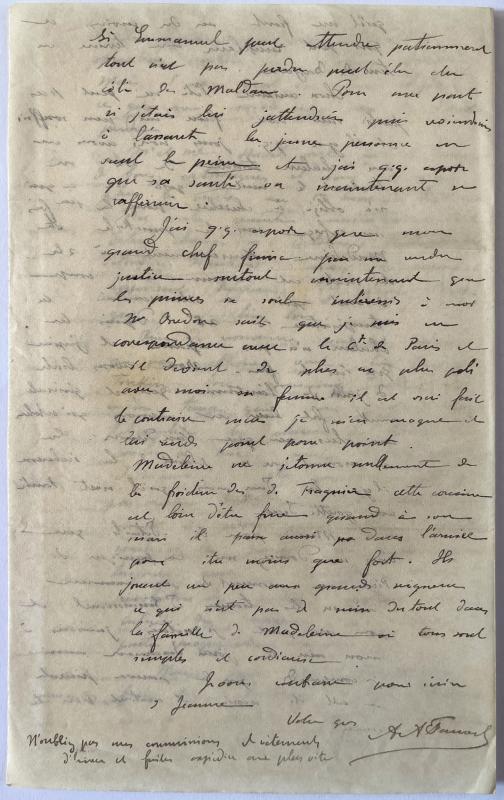 Si Emmanuel peut attendre patiemment
tout n'est pas perdu peut être du
côté des Maldan. Pour ma part
si j'étais lui j'attendrais puis reviendrais
à l'assaut la jeune personne en
vaut la peine et j'ai q.q. espoir
que sa santé va maintenant se
raffermir.
J'ai q.q. espoir que mon
grand chef finira par me rendre
justice surtout maintenant que
les princes se sont intéressés à moi
Mr sait que je suis en
correspondance avec le Cte de Paris et
il devient de plus en plus poli
avec moi sa femme il est vrai fait
le contraire mais je m'en moque et
lui rends point pour point.
Madeleine ne s'étonne nullement de
la froideur des de Fragnier cette cousine
est loin d'être fine quand à son
mari il passe aussi pas dans l'armée
pour être moins que fort. Ils
jouent un peu aux grands seigneurs
ce qui n'est pas de mise du tout dans
la famille de Madeleine où tous sont
simples et cordiaux
pour
Jeanne
Votre
N'oubliez pas mes commissions et vêtements
d'hiver et faites expédier au plus vite